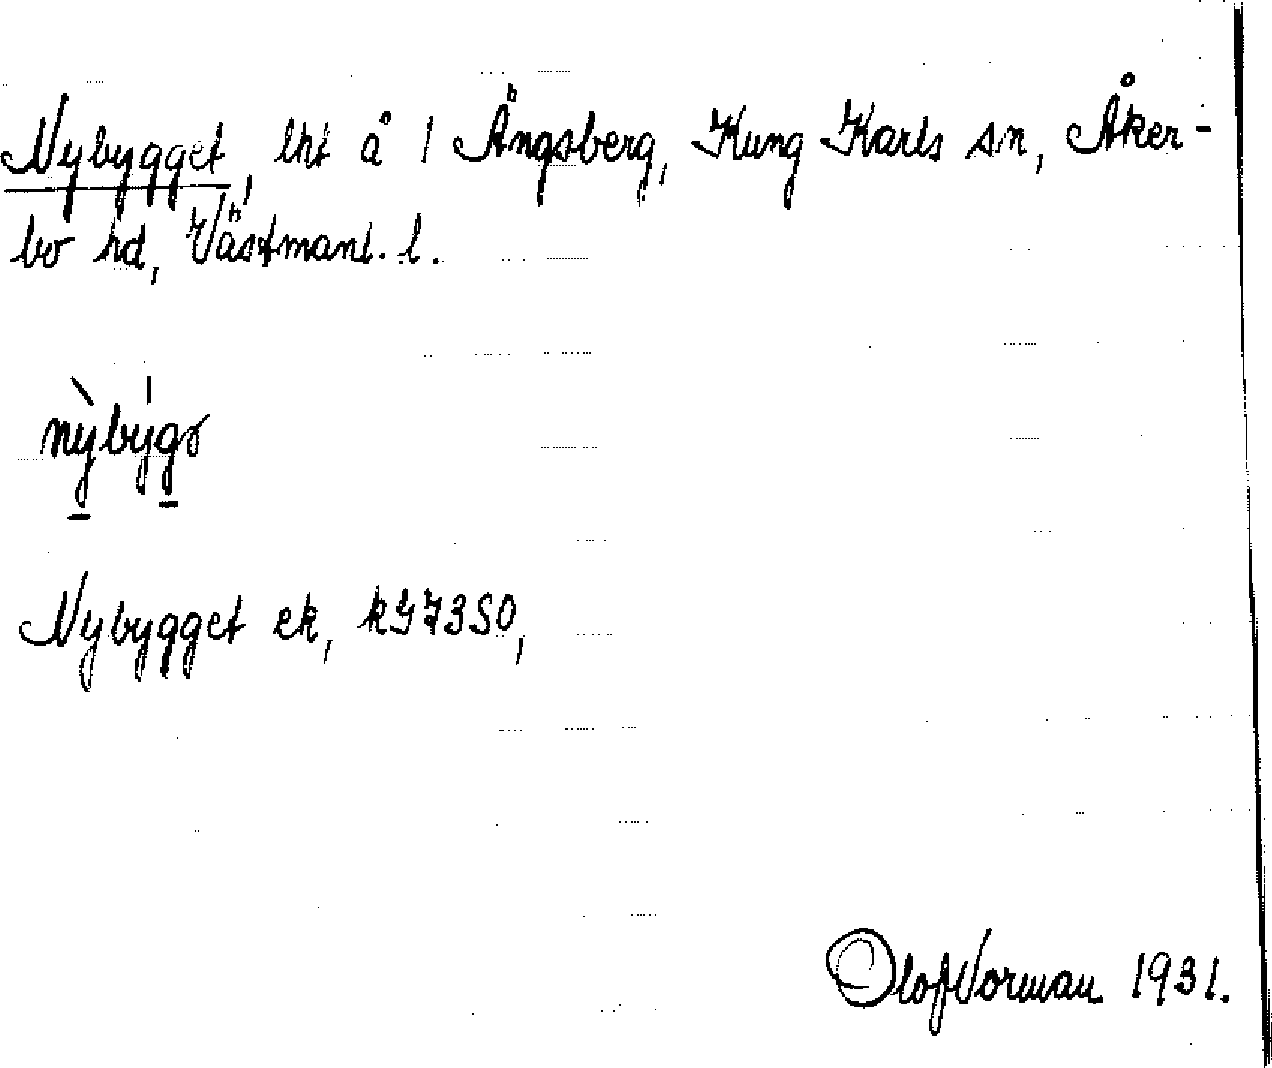 Nybygget, lht å 1 Ängsberg, Kung Karls sn, Åker-
bo hd, Västmanl. l.
Nybygget ek,
Olof Norman 1931.